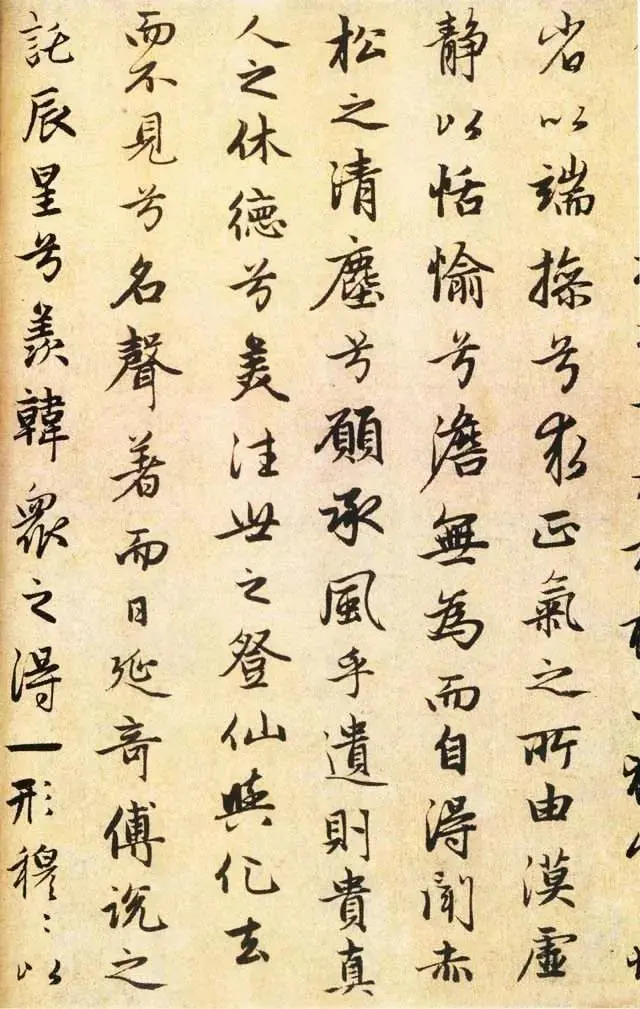 省以端操兮求正氣之所由漠虛
静以恬愉兮澹無為而自得聞赤
松之清塵兮願承風乎遺則貴真
人之休德兮羨往世之登仙與化去
而不見兮名聲著而日延奇傅說之
託辰星兮羨韓眾之得一形穆〻以